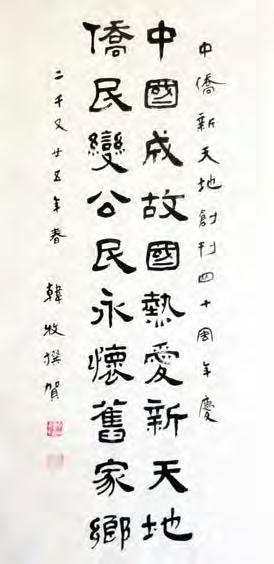 中僑新天地創刊四十周年慶
中國成故國熱愛新天地
僑民變公民永懷舊家鄉
二千又廿五年春 韓牧撰賀